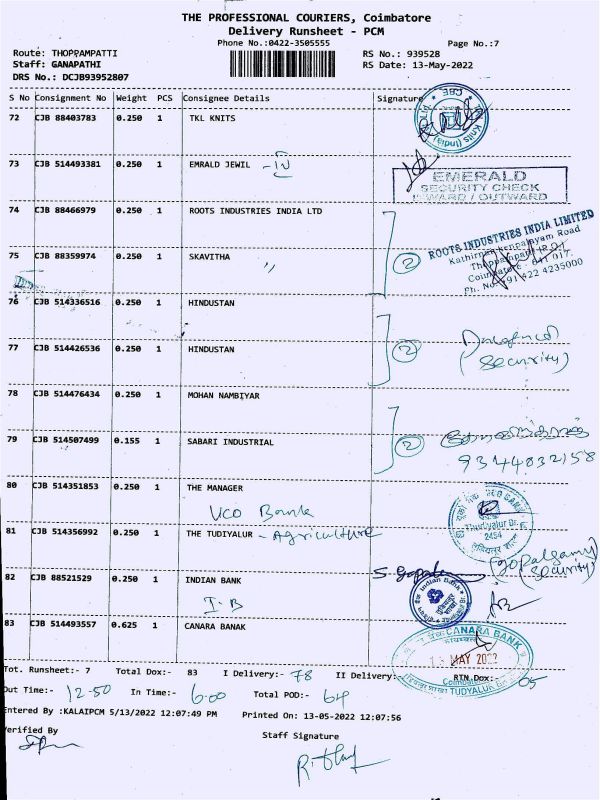 THE PROFESSIONAL COURIERS, Coimbatore
Delivery Runsheet - PCM
Phone No.:0422-3505555
Page No.:7
Route: THOPPAMPATTI
RS No.: 939528
Staff: GANAPATHI
RS Date: 13-May-2022
DRS No.: DCJB93952807
S No Consignment No Weight PCS Consignee Details Signature
72 CJB 88403783 0.250 1 TKL KNITS
CBE
Knits (India)
73 CJB 514493381 0.250 1 EMRALD JEWIL
EMERALD
SECURITY CHECK
INWARD / OUTWARD
74 CJB 88466979 0.250 1 ROOTS INDUSTRIES INDIA LTD
ROOTS INDUSTRIES INDIA LIMITED
Kathirnaickenpalayam Road
Thoppampatti (P.O)
Coimbatore - 641 017.
Ph. No +91 422 4235000
75 CJB 88359974 0.250 1 SKAVITHA
2
76 CJB 514336516 0.250 1 HINDUSTAN
77 CJB 514426536 0.250 1 HINDUSTAN
2
(Security)
78 CJB 514476434 0.250 1 MOHAN NAMBIYAR
79 CJB 514507499 0.155 1 SABARI INDUSTRIAL
2
9344832158
80 CJB 514351853 0.250 1 THE MANAGER
UCO Bank
UCO BANK
Thudiyalur Br.
2454
81 CJB 514356992 0.250 1 THE TUDIYALUR - Agriculture
S Gopalsamy
(Gopalsamy
(Security)
82 CJB 88521529 0.250 1 INDIAN BANK
I.B
Indian Bank
83 CJB 514493557 0.625 1 CANARA BANAK
CANARA BANK
13 MAY 2022
Coimbatore
TUDIYALUR
Tot. Runsheet:- 7 Total Dox:- 83 I Delivery:- 78 II Delivery:- RTN.Dox:- 05
Out Time:- 12-50 In Time:- 6.00 Total POD:- 64
Entered By :KALAIPCM 5/13/2022 12:07:49 PM Printed On: 13-05-2022 12:07:56
Verified By
Staff Signature